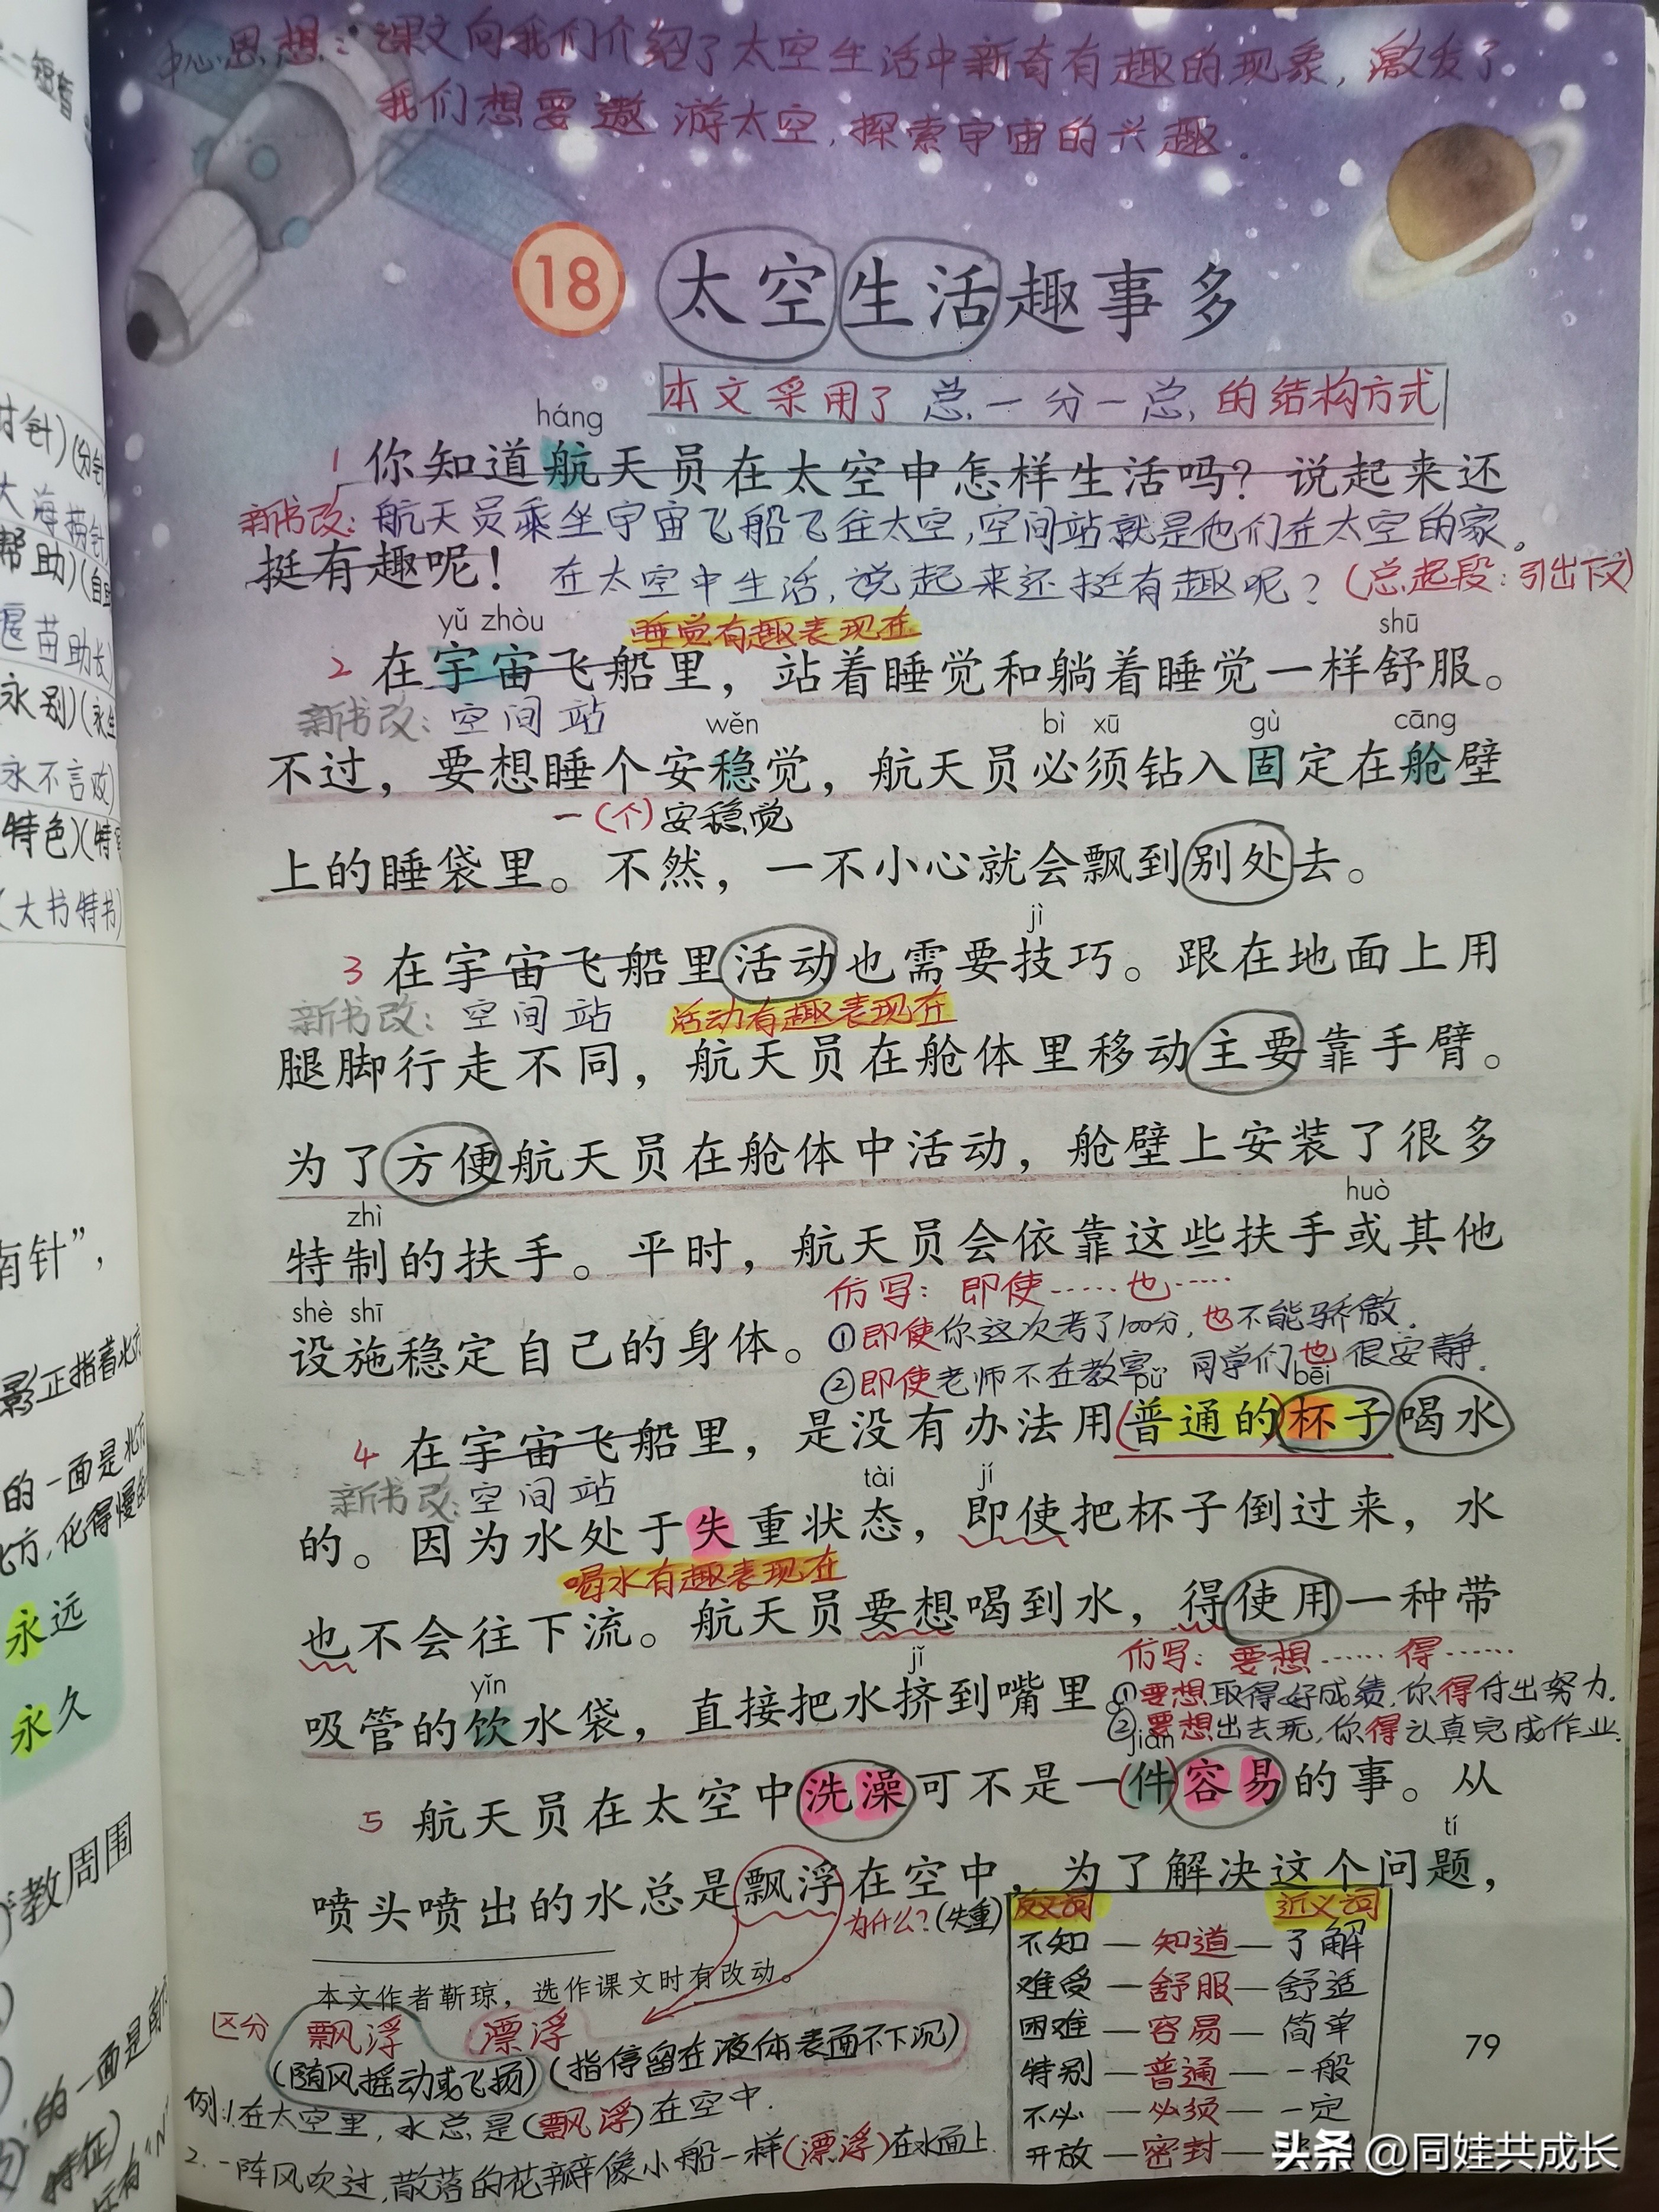 中心思想：课文向我们介绍了太空生活中新奇有趣的现象，激发了
我们想要遨游太空，探索宇宙的兴趣。
18 太空生活趣事多
本文采用了总一分一总，的结构方式
háng
1 你知道航天员在太空中怎样生活吗？说起来还
新书改：航天员乘坐宇宙飞船飞往太空，空间站就是他们在太空的家。
挺有趣呢！ 在太空中生活，说起来还挺有趣呢？（总起段：引出下文）
yǔ zhòu 睡觉有趣表现在 shū
2 在宇宙飞船里，站着睡觉和躺着睡觉一样舒服。
新书改：空间站 wěn bì xū gù cāng
不过，要想睡个安稳觉，航天员必须钻入固定在舱壁
一（个）安稳觉
上的睡袋里。不然，一不小心就会飘到别处去。
jì
3 在宇宙飞船里活动也需要技巧。跟在地面上用
新书改：空间站 活动有趣表现在
腿脚行走不同，航天员在舱体里移动主要靠手臂。
为了方便航天员在舱体中活动，舱壁上安装了很多
zhì huò
特制的扶手。平时，航天员会依靠这些扶手或其他
仿写：即使……也……
shè shī
设施稳定自己的身体。 ①即使你这次考了100分，也不能骄傲．
②即使老师不在教室 同学们也很安静．
pǔ bēi
4 在宇宙飞船里，是没有办法用（普通的）杯子喝水
新书改：空间站 tài jí
的。因为水处于失重状态，即使把杯子倒过来，水
喝水有趣表现在
也不会往下流。航天员要想喝到水，得使用一种带
仿写：要想……得……
yǐn jǐ
吸管的饮水袋，直接把水挤到嘴里。①要想取得好成绩，你得付出努力．
②要想出去玩，你得认真完成作业．
jiàn
5 航天员在太空中洗澡可不是一（件）容易的事。从
tí
喷头喷出的水总是飘浮在空中，为了解决这个问题，
为什么？（失重）
本文作者靳琼，选作课文时有改动。
区分 飘浮 漂浮
（随风摇动或飞扬）（指停留在液体表面不下沉）
例：1.在太空里，水总是（飘浮）在空中．
2.一阵风吹过，散落的花瓣像小船一样（漂浮）在水面上．
反义词 近义词
不知 — 知道 — 了解
难受 — 舒服 — 舒适
困难 — 容易 — 简单
特别 — 普通 — 一般
不必 — 必须 — 一定
开放 — 密封 —
79
头条 @同娃共成长
时针）（分针
大海捞针
帮助）（自
苗助长）
永别）（永
永不言败）
特色）（特
（大书特书）
南针”，
影正指着北方
的一面是北方
北方，化得慢的
永远
永久
教周围
的一面是南
特征）